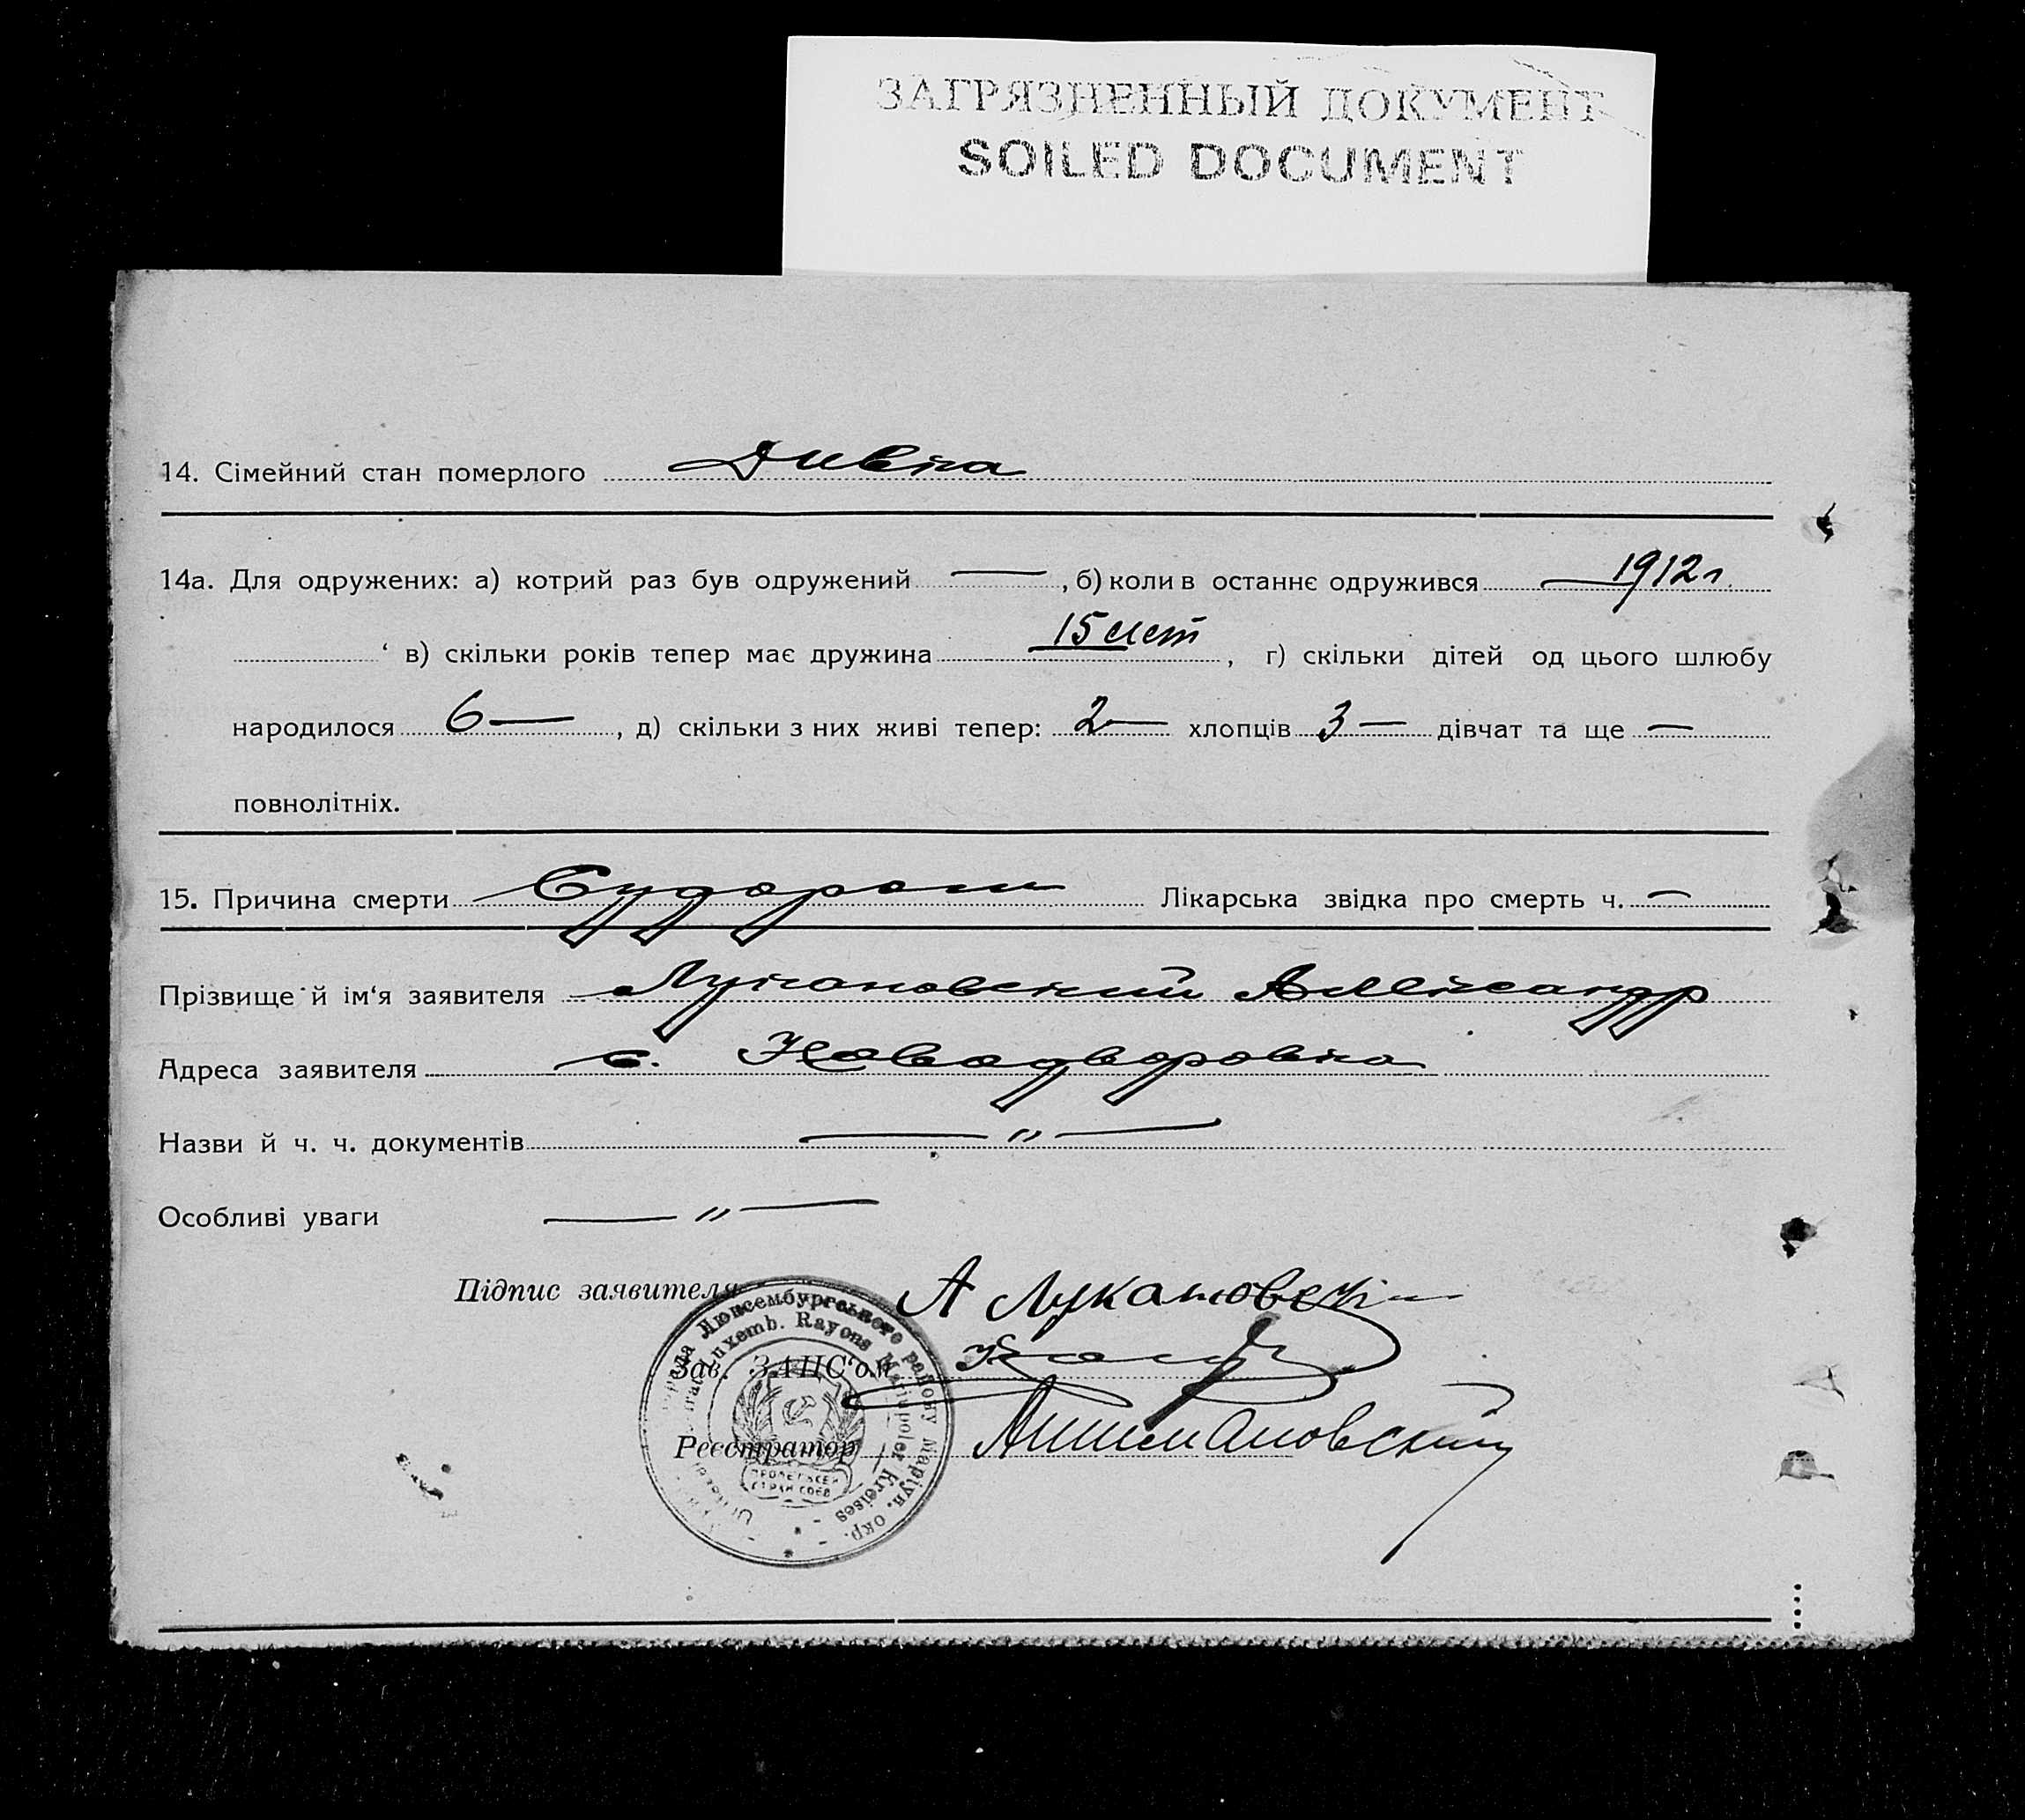 ЗАГРЯЗНЕННЫЙ ДОКУМЕНТ
SOILED DOCUMENT
14. Сімейний стан померлого Дивка
14а. Для одружених: а) котрий раз був одружений — , б) коли в останнє одружився — 1912 г.
‘ в) скільки років тепер має дружина 15 лет , г) скільки дітей од цього шлюбу
народилося 6 — , д) скільки з них живі тепер: 2 — хлопців 3 — дівчат та ще —
повнолітніх.
15. Причина смерти Судороги Лікарська звідка про смерть ч. —
Прізвище й ім‘я заявителя Лукановский Александр
Адреса заявителя с. Новодворовка
Назви й ч. ч. документів — „ —
Особливі уваги — „ —
Підпис заявителя А Лукановскі
Зав. ЗАПС‘ом
Реєстратор
Люксембургського району Маріуп. окр.
Luxemb. Rayons Mariupoler Kreises